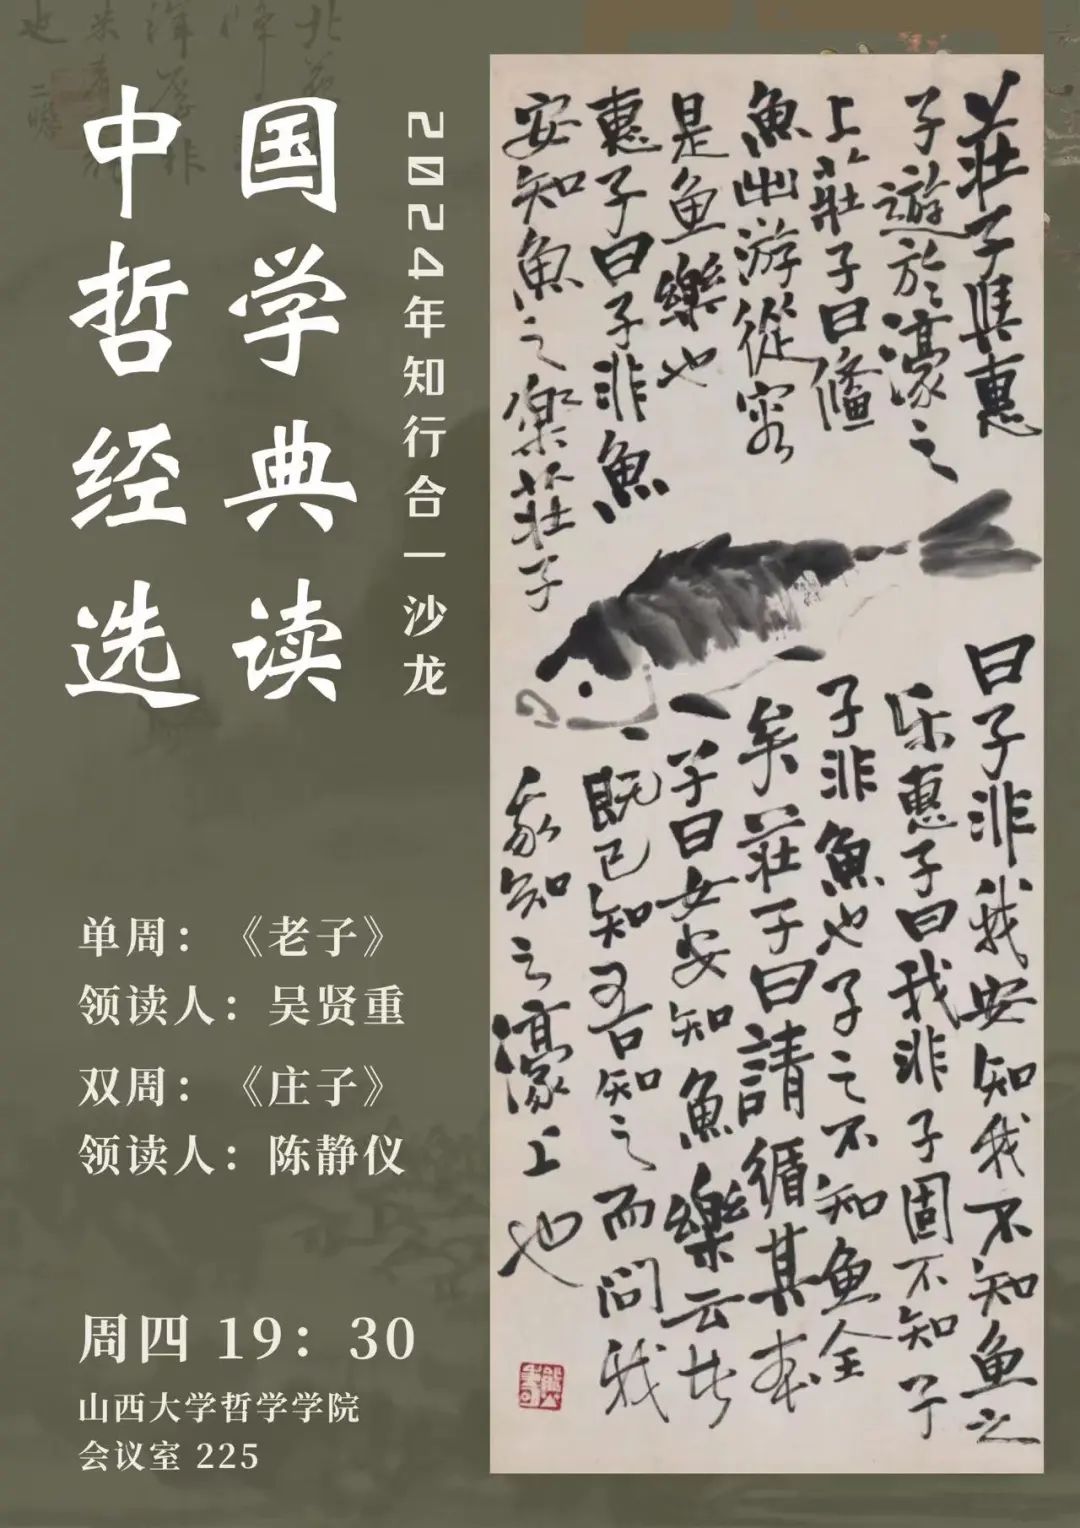 中国
哲学
经典
选读
2024年知行合一沙龙
莊子與惠
子遊於濠之
上莊子曰鯈
魚出游從容
是鱼樂也
惠子曰子非魚
安知魚之樂莊子
曰子非我安知我不知鱼之
乐惠子曰我非子固不知子
子非魚也子之不知鱼全
矣莊子曰請循其本
子曰女安知魚樂云者
既已知吾知之而问我
我知之濠上也
单周：《老子》
领读人：吴贤重
双周：《庄子》
领读人：陈静仪
周四 19：30
山西大学哲学学院
会议室 225